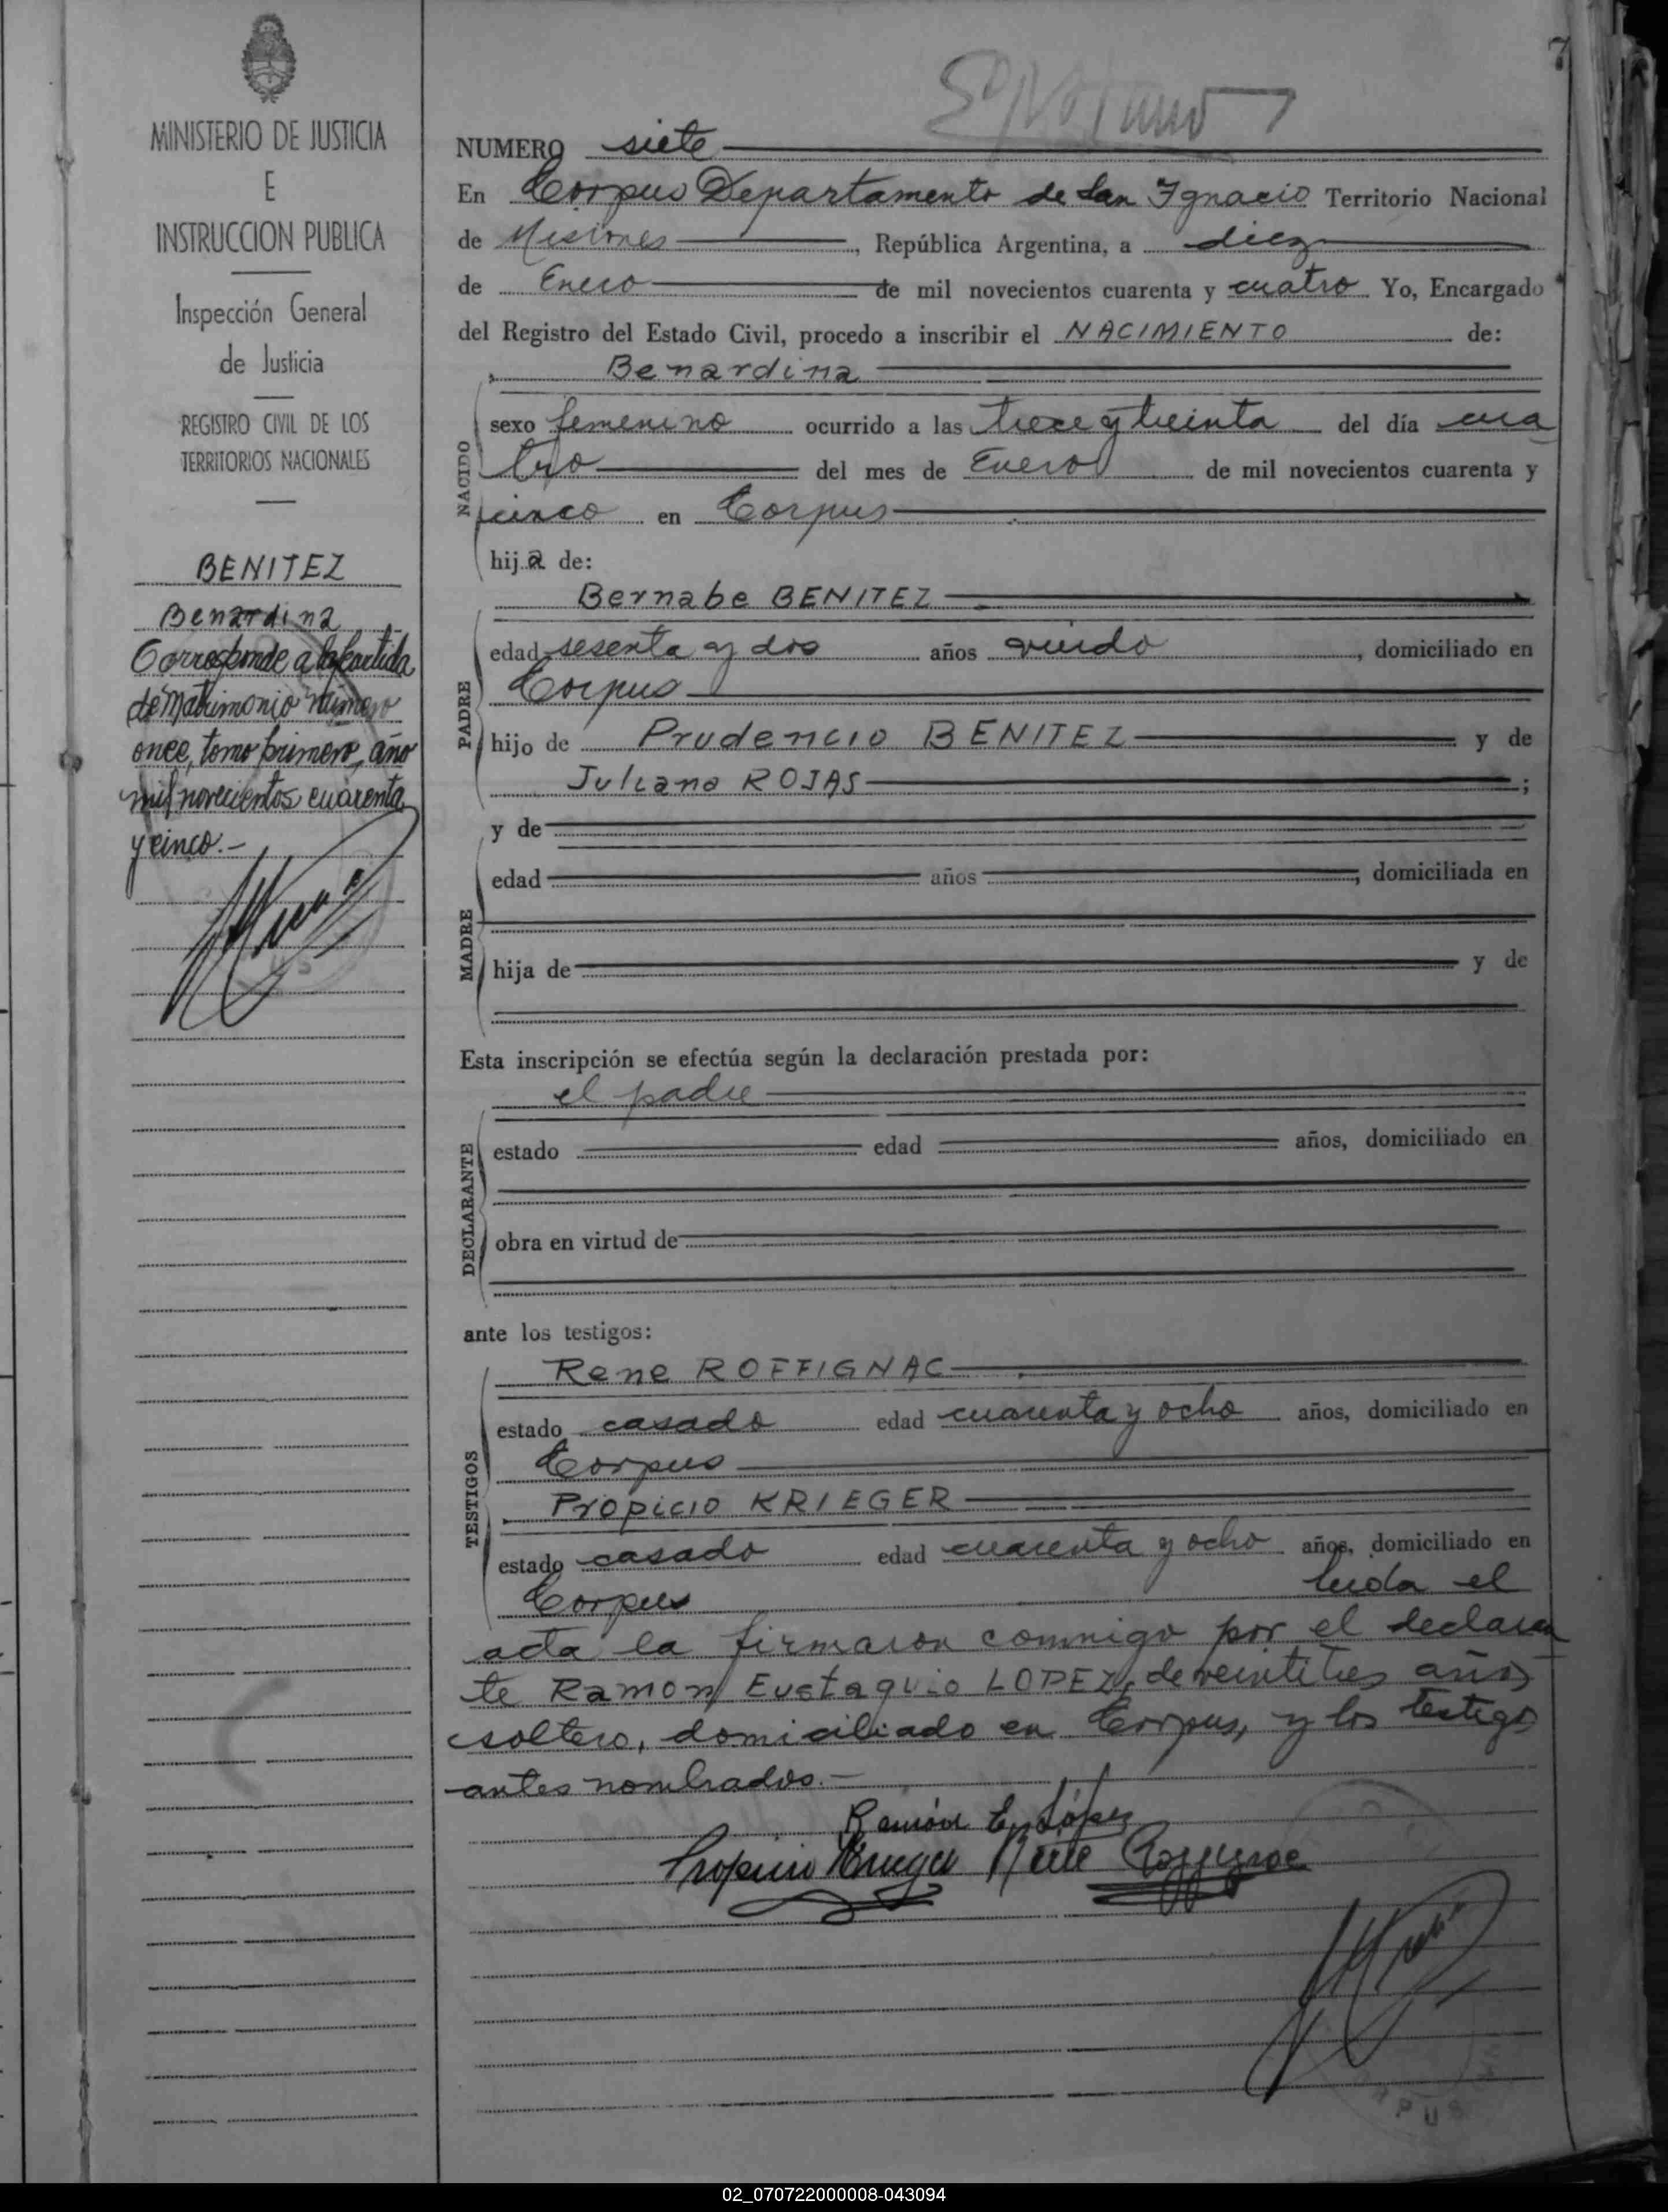 7
MINISTERIO DE JUSTICIA
E
INSTRUCCION PUBLICA
Inspección General
de Justicia
REGISTRO CIVIL DE LOS
TERRITORIOS NACIONALES
BENITEZ
Benardina
Corresponde a la partida
de Matrimonio número
once, tomo primero, año
mil novecientos cuarenta
y cinco.-
NUMERO siete
En Corpus Departamento de San Ignacio Territorio Nacional
de Misiones, República Argentina, a diez
de Enero de mil novecientos cuarenta y cuatro Yo, Encargado
del Registro del Estado Civil, procedo a inscribir el NACIMIENTO de:
Benardina
NACIDO
sexo femenino ocurrido a las trece y treinta del día cua
tro del mes de Enero de mil novecientos cuarenta y
cinco en Corpus
hija de:
Bernabe BENITEZ
PADRE
edad sesenta y dos años viudo, domiciliado en
Corpus
hijo de Prudencio BENITEZ y de
Juliana ROJAS;
y de
MADRE
edad años, domiciliada en
hija de y de
Esta inscripción se efectúa según la declaración prestada por:
el padre
DECLARANTE
estado edad años, domiciliado en
obra en virtud de
ante los testigos:
Rene ROFFIGNAC
TESTIGOS
estado casado edad cuarenta y ocho años, domiciliado en
Corpus
Propicio KRIEGER
estado casado edad cuarenta y ocho años, domiciliado en
Corpus leida el
acta la firmaron conmigo por el declaran
te Ramon Eustaquio LOPEZ, de veintitres años
soltero, domiciliado en Corpus, y los testigos
antes nombrados.-
Ramón E. López
Propicio Krieger Rene Roffignac
02_070722000008-043094